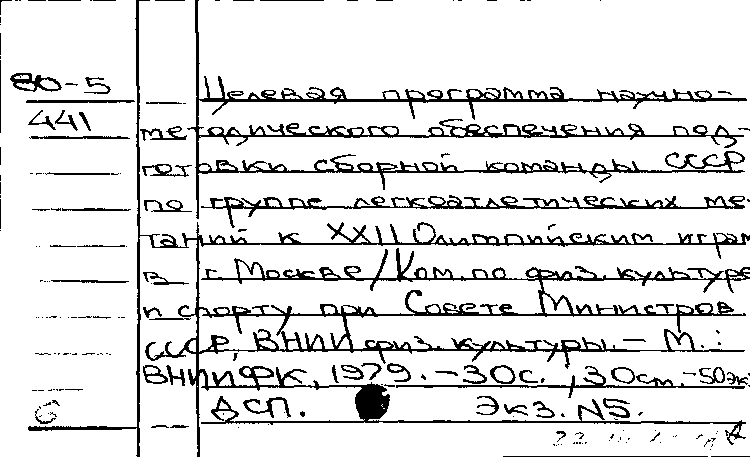 80-5 Целевая программа научно-
441 методического обеспечения под-
готовки сборной команды СССР
по группе легкоатлетических ме-
таний к XXII Олимпийским играм
в г. Москве/Ком. по физ. культуре
и спорту при Совете Министров
СССР, ВНИИ физ. культуры. - М.:
ВНИИФК, 1979. - 30с.; 30см. - 50экз
6 ДСП. Экз. N5.